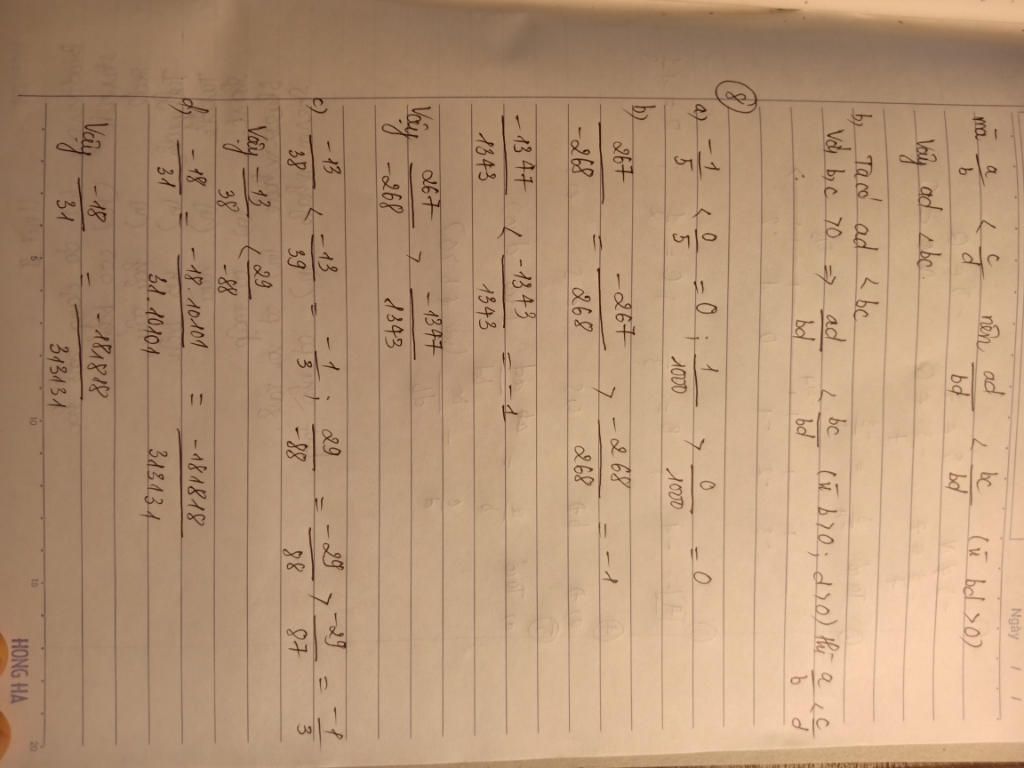 Ngày / /
mà a/b < c/d nên ad/bd < bc/bd (vì bd > 0)
Vậy ad < bc
b, Ta có ad < bc
Với b,c > 0 => ad/bd < bc/bd (vì b>0; d>0) thì a/b < c/d
8
a) -1/5 < 0/5 = 0; 1/1000 > 0/1000 = 0
b) 267/-268 = -267/268 > -268/268 = -1
-1347/1343 < -1343/1343 = -1
Vậy 267/-268 > -1347/1343
c) -13/38 < -13/39 = -1/3; 29/-88 = -29/88 > -29/87 = -1/3
Vậy -13/38 < 29/-88
d) -18/31 = -18.10101/31.10101 = -181818/313131
Vậy -18/31 = -181818/313131
5 10 15 20
HONG HA